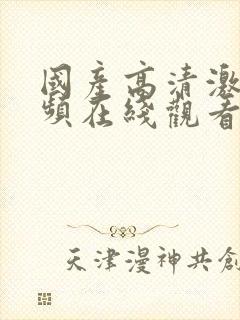 國產高清激
頻在綫觀看
天津漫神共創